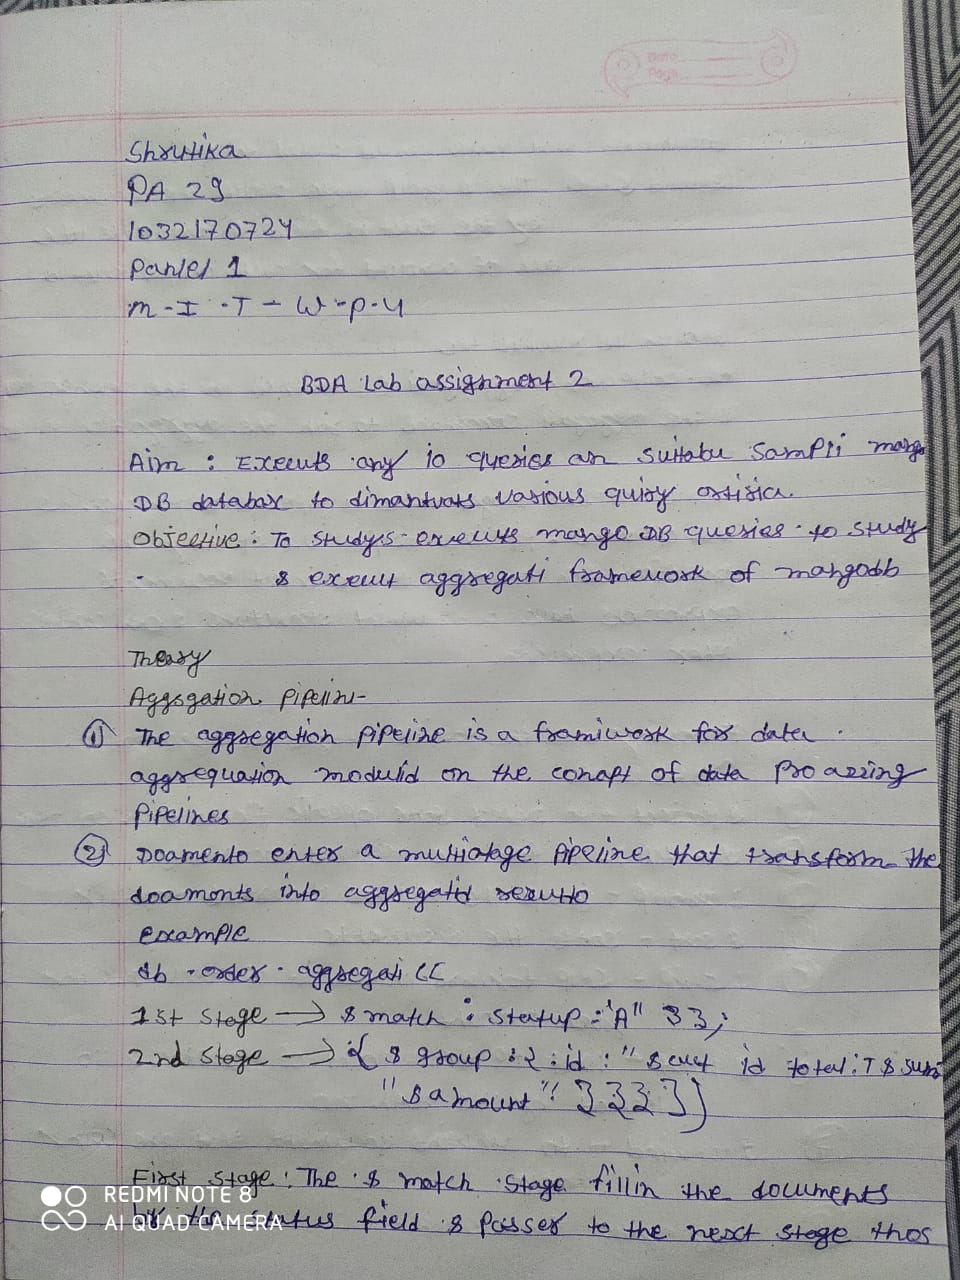 Date
Page
Shrutika
PA 29
1032170724
Panel 1
M-I.-T-W-P-U
BDA Lab assignment 2
Aim : Execute any 10 queries on suitabu Sampli mango
DB databax to various
Objective : To study execute mango DB queries to study
& execut aggregati framework of mangodb
Theory
Aggsgation Pipeline-
① The aggregation pipeline is a framiwork for data
aggrequation modulid on the conapt of data Pro azzing
Pipelines
② Doamento enter a multiotage Apeline that transform the
doamonts into aggregatid resulto
example
db . order . aggregati ([
1st Stage → $ match : status : "A" }};
2nd Stage → { $ group : { : id : " $ cut id total : $ sum
" $ amount " } } } ] )
First stage : The $ match stage fillin the documents
by the status field & Passes to the next stage thos
REDMI NOTE 8
AI QUAD CAMERA